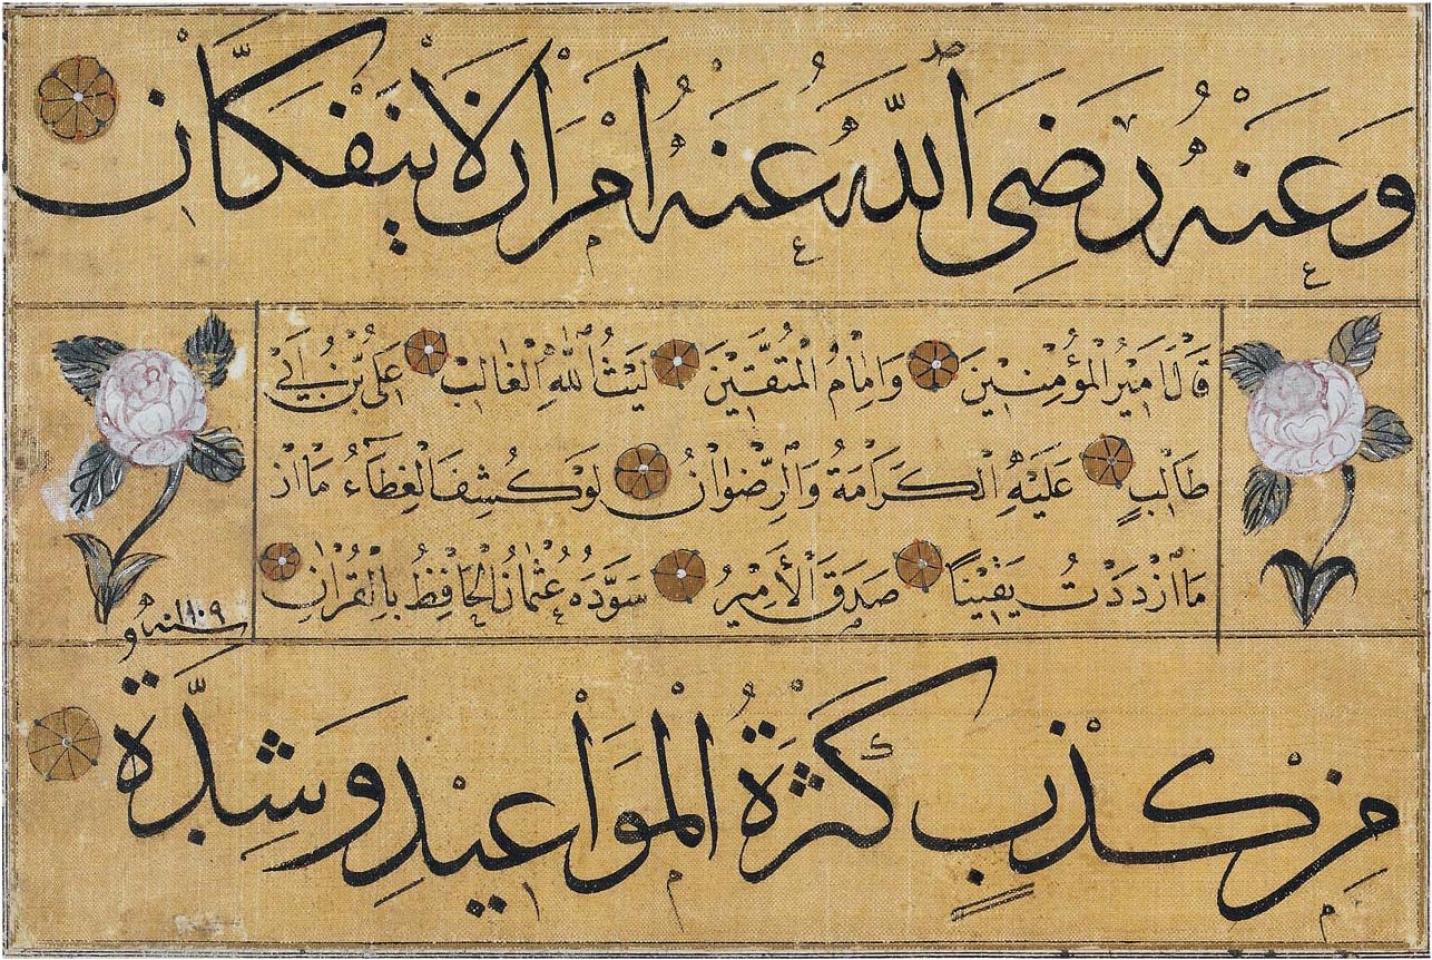 وَعَنْهُ رَضِىَ اللّٰهُ عَنْهُ اَمْرَانِ لَا يَنْفَكَّانِ
قَالَ اَمِيْرُ الْمُؤْمِنِيْنَ وَاِمَامُ الْمُتَّقِيْنَ لَيْثُ اللّٰهِ الْغَالِبْ عَلِىُّ بْنُ اَبِى
طَالِبٍ عَلَيْهِ الْكَرَامَةُ وَالرِّضْوَانُ لَوْ كُشِفَ الْغِطَاءُ مَا ازْ
مَا ازْدَدْتُ يَقِيْنًا صَدَقَ الْاَمِيْرُ سَوَّدَهُ عُثْمَانُ الْحَافِظُ بِالْقُرْاٰنِ
سنه ١١٠٩
مِنْ كَذِبٍ كَثْرَةُ الْمَوَاعِيْدِ وَشِدَّةُ